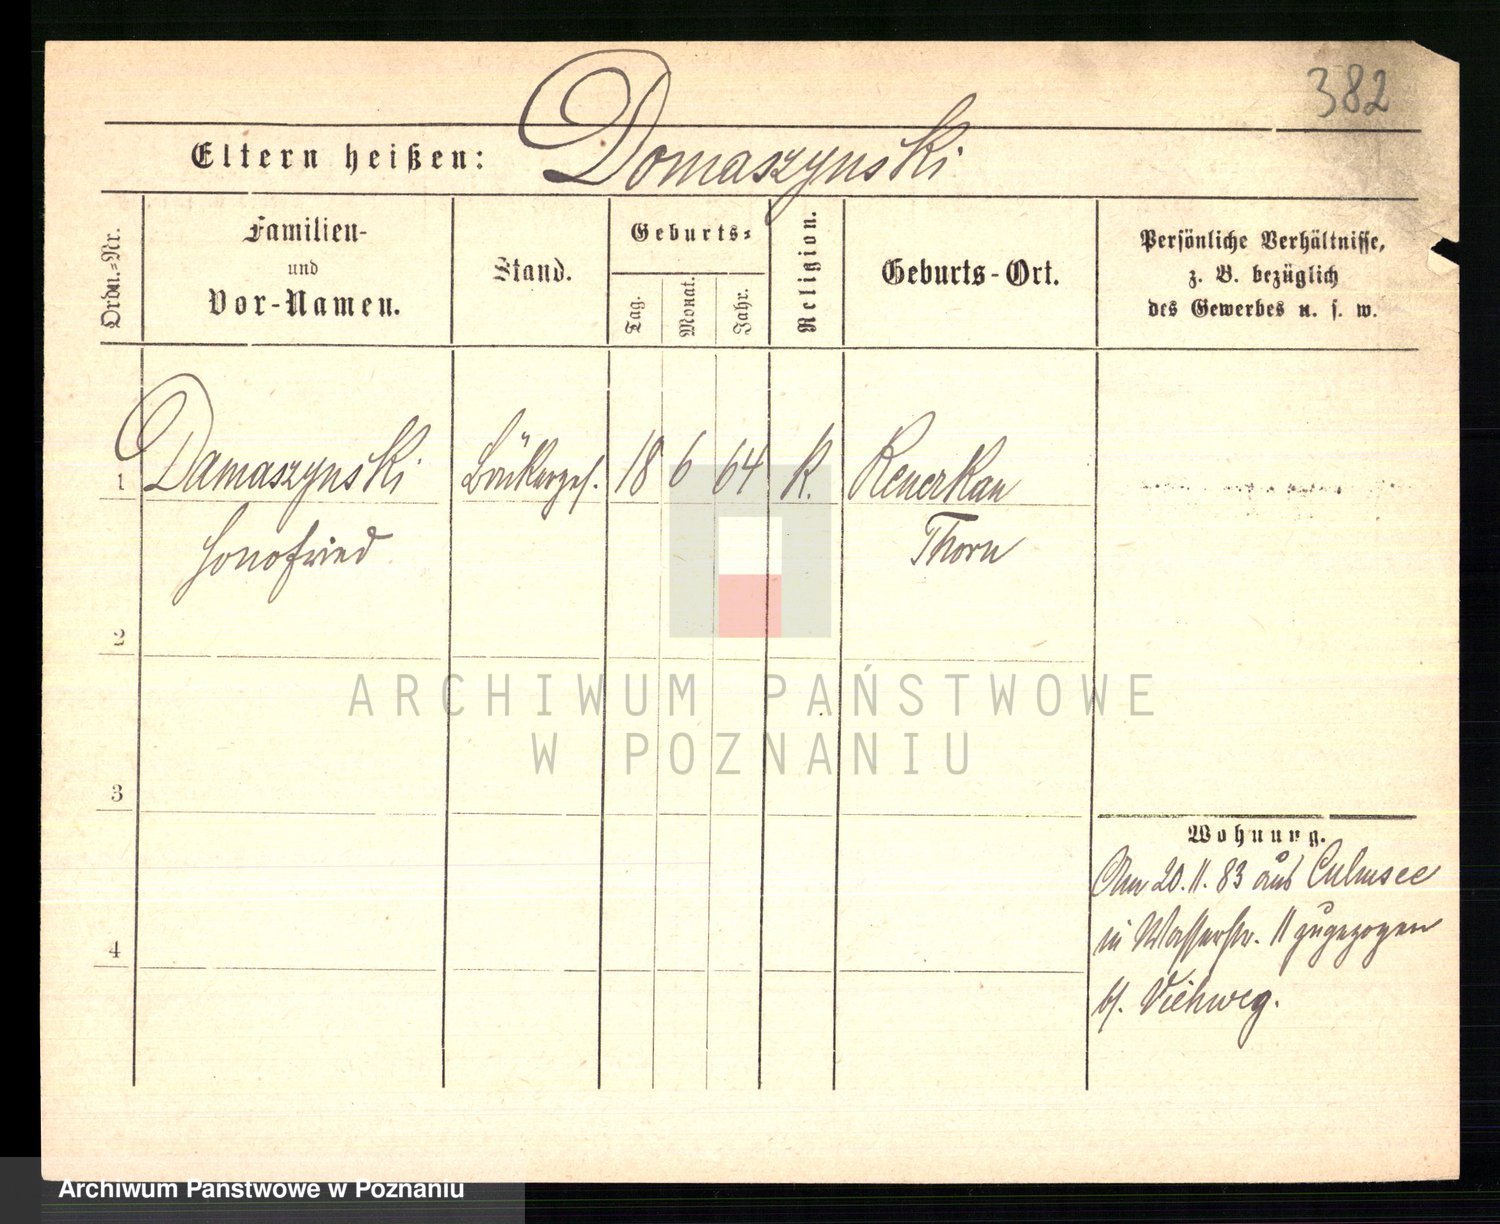 382
Eltern heißen: Domaszynski
Ordn.-Nr.
Familien-
und
Vor-Namen.
Stand.
Geburts-
Tag.
Monat.
Jahr.
Religion.
Geburts-Ort.
Persönliche Verhältnisse,
z. B. bezüglich
des Gewerbes u. s. w.
1 Damaszynski 18 6 64 K.
Honofried Thorn
2
3
4
Wohnung.
Am 20.11.83 aus Culmsee
in Wasserstr. 11 zugezogen
b/. Viehweg.
ARCHIWUM PAŃSTWOWE
W POZNANIU
Archiwum Państwowe w Poznaniu